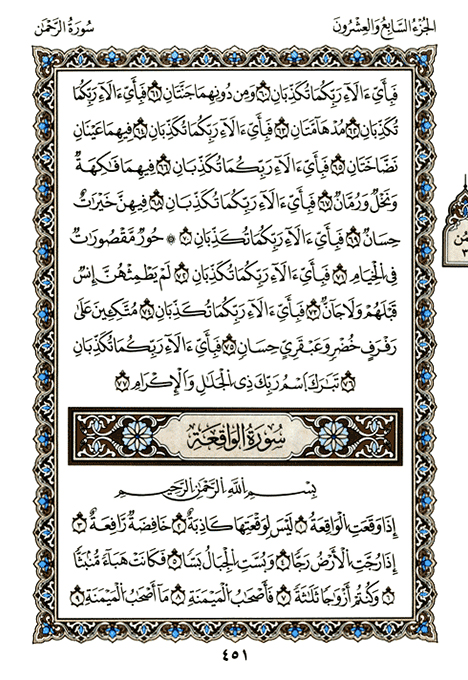 الجُزْءُ السَّابِعُ وَالعِشْرُونَ
سُورَةُ الرَّحْمَٰن
فَبِأَيِّ ءَالَآءِ رَبِّكُمَا تُكَذِّبَانِ ٦٠ وَمِن دُونِهِمَا جَنَّتَانِ ٦١ فَبِأَيِّ ءَالَآءِ رَبِّكُمَا
تُكَذِّبَانِ ٦٢ مُدْهَآمَّتَانِ ٦٣ فَبِأَيِّ ءَالَآءِ رَبِّكُمَا تُكَذِّبَانِ ٦٤ فِيهِمَا عَيْنَانِ
نَضَّاخَتَانِ ٦٥ فَبِأَيِّ ءَالَآءِ رَبِّكُمَا تُكَذِّبَانِ ٦٦ فِيهِمَا فَٰكِهَةٌ
وَنَخْلٌ وَرُمَّانٌ ٦٧ فَبِأَيِّ ءَالَآءِ رَبِّكُمَا تُكَذِّبَانِ ٦٨ فِيهِنَّ خَيْرَٰتٌ
حِسَانٌ ٦٩ فَبِأَيِّ ءَالَآءِ رَبِّكُمَا تُكَذِّبَانِ ٧٠ حُورٌ مَّقْصُورَٰتٌ
فِي الْخِيَامِ ٧١ فَبِأَيِّ ءَالَآءِ رَبِّكُمَا تُكَذِّبَانِ ٧٢ لَمْ يَطْمِثْهُنَّ إِنسٌ
قَبْلَهُمْ وَلَا جَآنٌّ ٧٣ فَبِأَيِّ ءَالَآءِ رَبِّكُمَا تُكَذِّبَانِ ٧٤ مُتَّكِـِٔينَ عَلَىٰ
رَفْرَفٍ خُضْرٍ وَعَبْقَرِيٍّ حِسَانٍ ٧٥ فَبِأَيِّ ءَالَآءِ رَبِّكُمَا تُكَذِّبَانِ
٧٦ تَبَٰرَكَ اسْمُ رَبِّكَ ذِي الْجَلَٰلِ وَالْإِكْرَامِ ٧٧
سُورَةُ الْوَاقِعَةِ
بِسْمِ اللَّهِ الرَّحْمَٰنِ الرَّحِيمِ
إِذَا وَقَعَتِ الْوَاقِعَةُ ١ لَيْسَ لِوَقْعَتِهَا كَاذِبَةٌ ٢ خَافِضَةٌ رَّافِعَةٌ ٣
إِذَا رُجَّتِ الْأَرْضُ رَجًّا ٤ وَبُسَّتِ الْجِبَالُ بَسًّا ٥ فَكَانَتْ هَبَآءً مُّنۢبَثًّا
٦ وَكُنتُمْ أَزْوَٰجًا ثَلَٰثَةً ٧ فَأَصْحَٰبُ الْمَيْمَنَةِ ٨ مَآ أَصْحَٰبُ الْمَيْمَنَةِ ٩
٤٥١